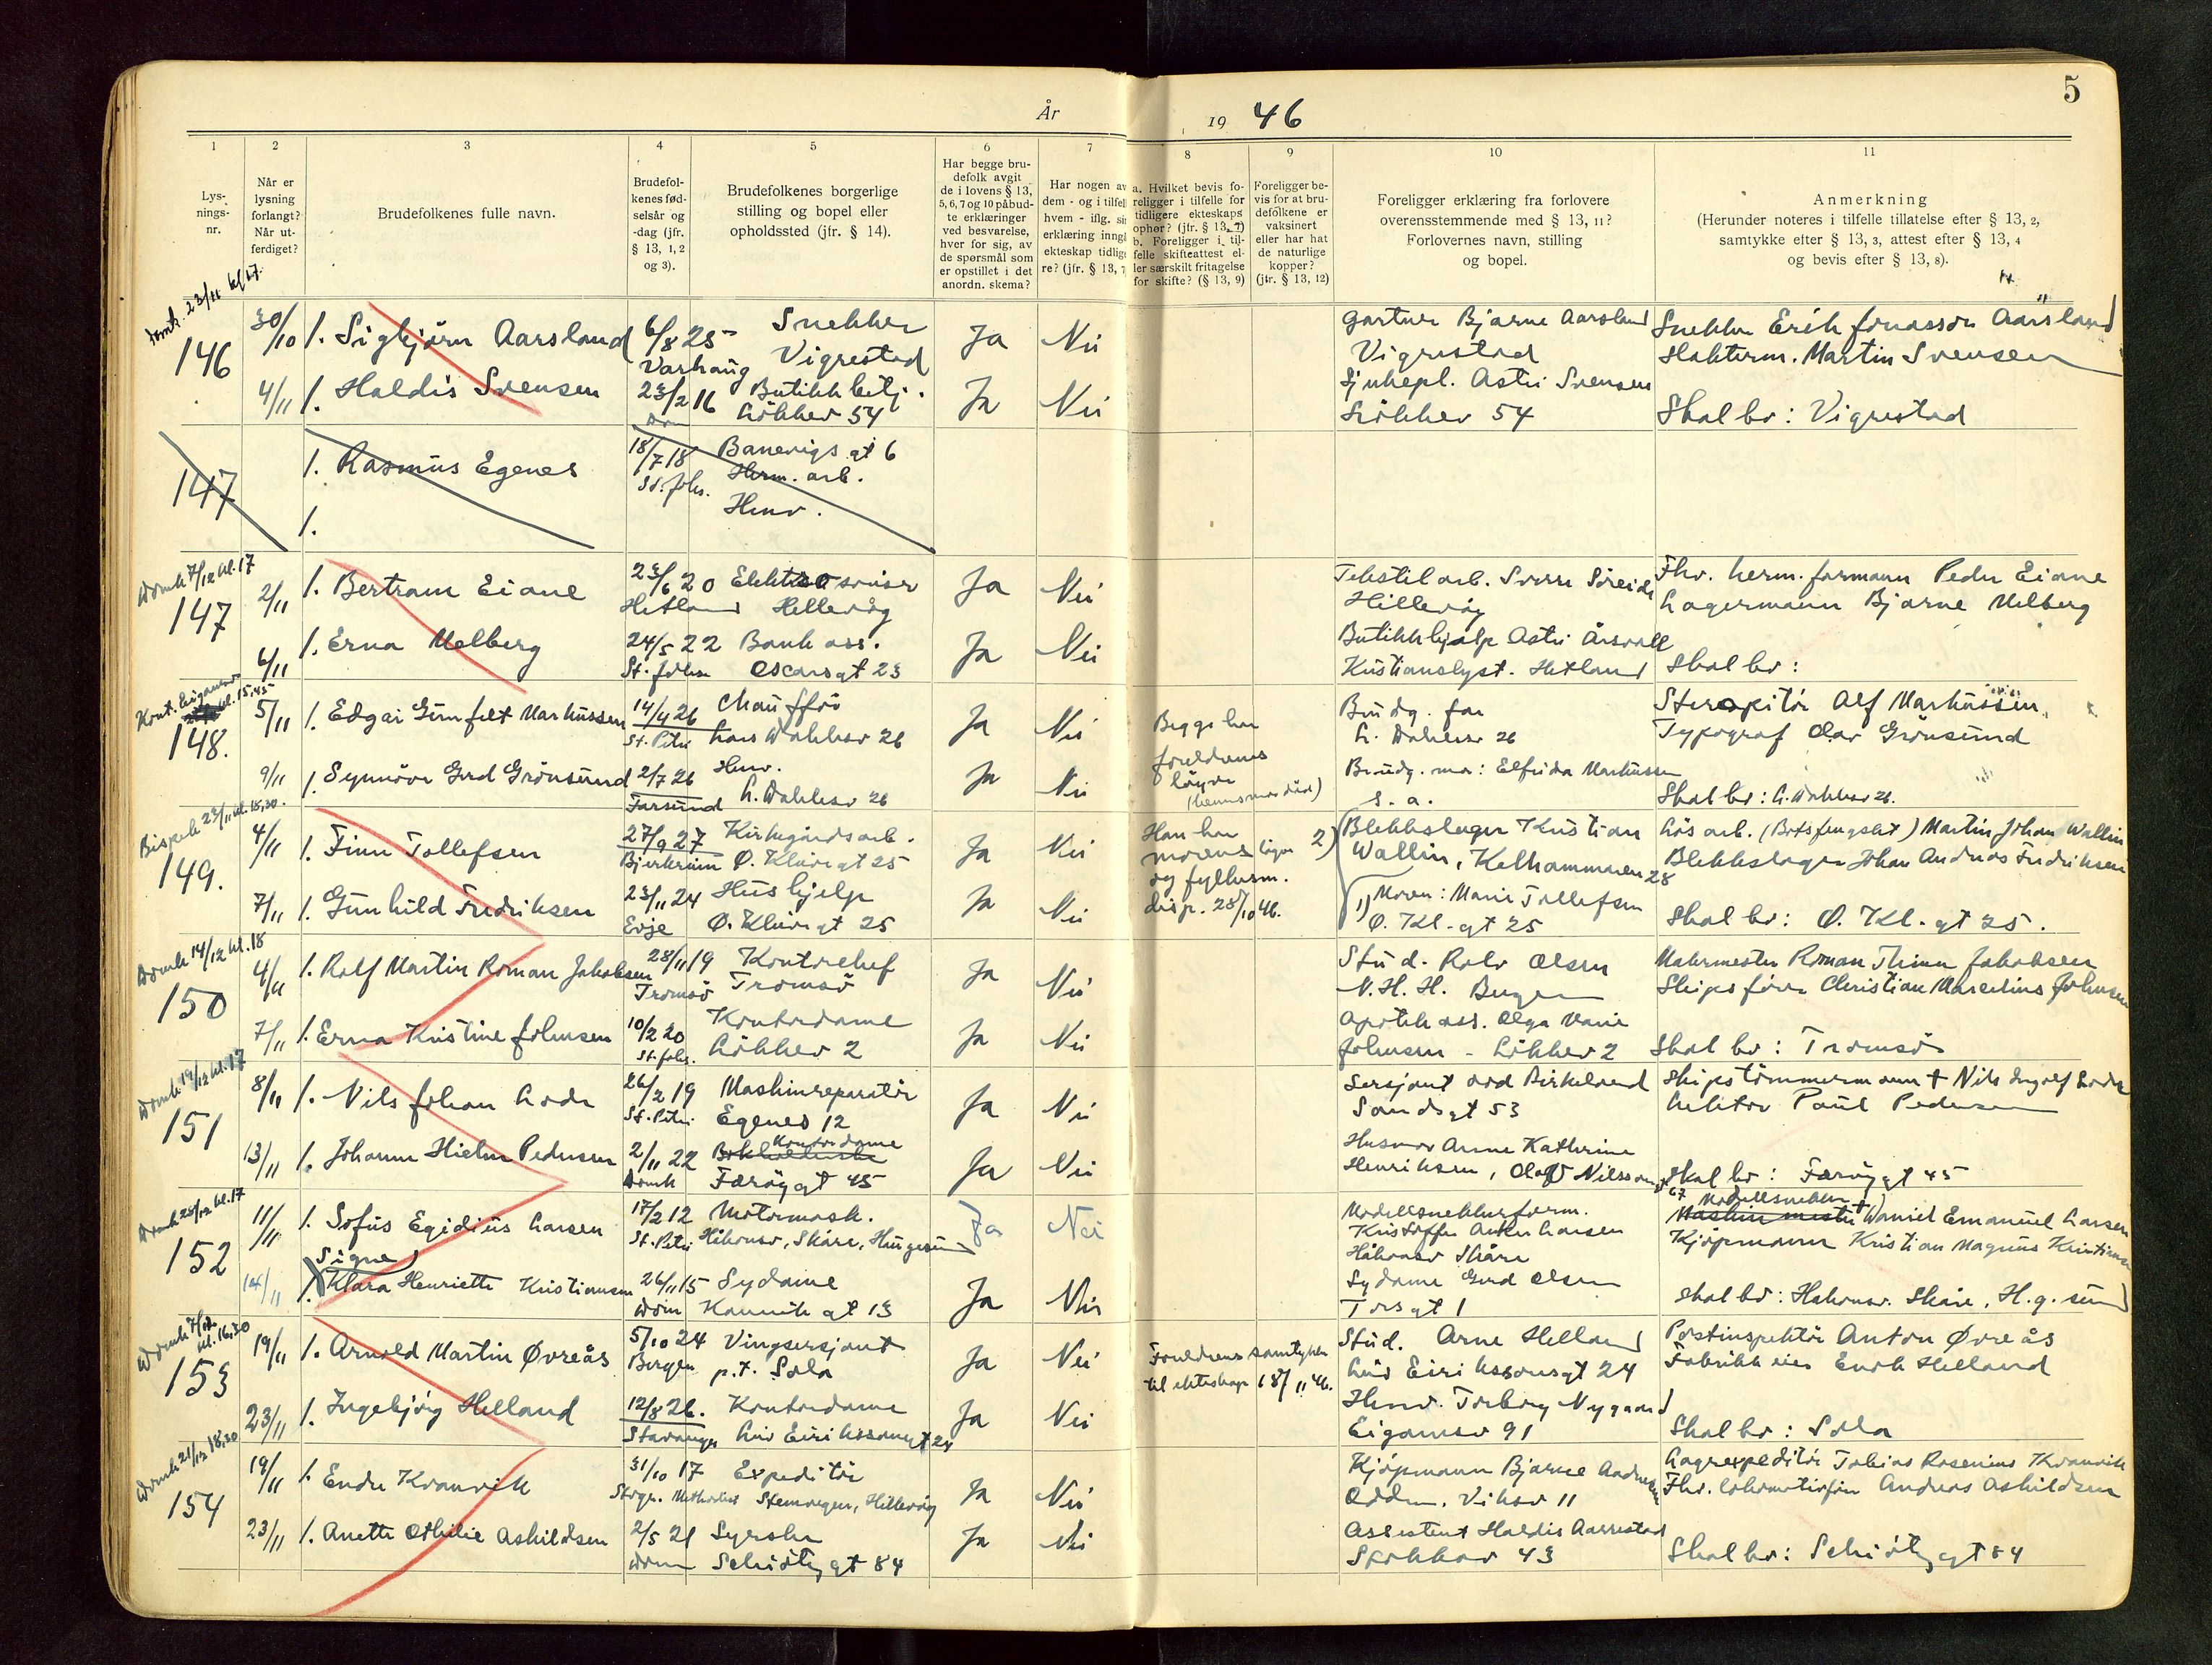 År 1946
5
1
2
3
4
5
6
7
8
9
10
11
Lys-
nings-
nr.
Når er
lysning
forlangt?
Når ut-
ferdiget?
Brudefolkenes fulle navn.
Brudefol-
kenes fød-
selsår og
-dag (jfr.
§ 13, 1, 2
og 3).
Brudefolkenes borgerlige
stilling og bopel eller
opholdssted (jfr. § 14).
Har begge bru-
defolk avgit
de i lovens § 13,
5, 6, 7 og 10 påbud-
te erklæringer
ved besvarelse,
hver for sig, av
de spørsmål som
er opstillet i det
anordn. skema?
Har nogen av
dem - og i tilfell
hvem - iflg. si
erklæring inngå
ekteskap tidlige
re? (jfr. § 13, 7
a. Hvilket bevis fo-
religger i tilfelle for
tidligere ekteskaps
ophør? (jfr. § 13, 7)
b. Foreligger i til-
felle skifteattest el-
ler særskilt fritagelse
for skifte? (§ 13, 9)
Foreligger be-
vis for at bru-
defolkene er
vaksinert
eller har hat
de naturlige
kopper?
(jfr. § 13, 12)
Foreligger erklæring fra forlovere
overensstemmende med § 13, 11?
Forlovernes navn, stilling
og bopel.
Anmerkning
(Herunder noteres i tilfelle tillatelse efter § 13, 2,
samtykke efter § 13, 3, attest efter § 13, 4
og bevis efter § 13, 8).
Domk. 23/11 kl 17
146
30/10 1. Sigbjörn Aarsland 6/8 25 Snekker Ja Nei Gartner Bjarne Aarsland Snekker Erik Jonasson Aarsland
Varhaug Vigrestad Vigrestad Hekterm. Martin Svensen
4/11 1. Haldis Svensen 23/2 16 Butikkbetj. Ja Nei Sjukepl. Astri Svensen
Dom Lökkev 54 Lökkev 54 Skal bo: Vigrestad
147 1. Rasmus Egenes 18/7 18 Banevigs gt 6
St. Joh. Herm. arb.
1. Hmv.
Domk 7/12 kl. 17
147
2/11 1. Bertram Eiane 23/6 20 Ja Nei Tekstilarb. Sverre Söreide Fhv. herm. formann Peder Eiane
Hetland Hillevåg Hillevåg Lagermann Bjarne Melberg
6/11 1. Erna Melberg 24/5 22 Bank ass. Ja Nei Butikkhjelp Astri
St. Johs Oscarsgt 23 Kristianslyst. Hetland Skal bo:
kl. 15,45
148.
5/11 1. Edgar Gunfelt Markussen 14/4 26 Chauffør Ja Nei Begge har Brudg. far Alf Markussen
St. Petri Lars Wakkesv 26 foreldrenes L. Wakkesv 26 Typograf Olav Grönsund
9/11 1. Synnöve Gerd Grönsund 2/7 26 Hmv. Ja Nei löyve Brudg. mor: Elfrida Markussen
Farsund L. Wakkesv 26 (hennes mor död) s. a. Skal bo: L. Wakkesv 26.
Bispek 23/11 kl. 18,30.
149.
4/11 1. Finn Tollefsen 27/9 27 Kirkegårdsarb. Ja Nei Han har 2) Blekkslager Kristian Lös arb. (Botsfengslet) Martin Johan Wallin
Bjerkreim Ø. Kluvigt 25 morens Wallin, Kelhammaren 28 Blekkslager Johan Andreas Fredriksen
7/11 1. Gunhild Fredriksen 23/11 24 Hushjelp Ja Nei og fylkesm. 1) Moren: Marie Tollefsen
Evje Ø. Kluvigt 25 disp. 28/10 46. Ø. Kl. gt 25 Skal bo: Ø. Kl. gt 25.
Domk 14/12 kl. 18
150
4/11 1. Rolf Martin Roman Jakobsen 28/11 19 Kontorchef Ja Nei Stud. Rolv Olsen Malermester Roman Jakobsen
Tromsö Tromsö N. H. H. Bergen Skipsförer Christian Marelius Johnsen
7/11 1. Erna Kristine Johnsen 10/2 20 Kontordame Ja Nei Apotek ass. Olga Marie
St. Joh. Lökkev 2 Johnsen - Lökkev 2 Skal bo: Tromsö
Domk 19/12 kl. 17
151
8/11 1. Nils Johan Lode 26/2 19 Maskinreparatör Ja Nei Sersjant Odd Birkeland Skipstömmermann † Nils Ingolf Lode
St. Petri Egenes 12 Sandsgt 53 Paul Pedersen
13/11 1. Johanne Hielm Pedersen 2/11 22 Kontordame Ja Nei Husmor Anne Kathrine
Domk Færöygt 45 Henriksen, Olaf Nilssons gt 67 Skal bo: Færöygt 45
Domk 25/12 kl. 17
152
11/11 1. Sofus Egidius Larsen 17/2 12 Motormask. Ja Nei Modellsnekkerform. Modellsnekker † Daniel Emanuel Larsen
St. Petri Håkonsv, Skåre, Haugesund Kristoffer Anker Larsen Kjöpmann Kristian Magnus Kristiansen
Signe Håkonsv Skåre
14/11 1. Klara Henriette Kristiansen 26/11 15 Sydame Ja Nei Sydame Gerd Olsen
Dom Kannik gt 13 Torsgt 1 Skal bo: Hakonsv. Skåre, H.g. sund
Domk 7/12 kl. 16,30
153
19/11 1. Arnold Martin Øvreås 5/10 24 Vingsersjant Ja Nei Foreldrenes samtykke Stud. Arne Helland Postinspektör Anton Øvreås
Bergen p.t. Sola til ekteskap 18/11 46. Leiv Eirikssonsgt 24 Fabrikkeier Endre Helland
23/11 1. Ingebjörg Helland 12/8 26. Kontordame Ja Nei Hmv. Torborg Nygaard
Stavanger Leiv Eirikssonsgt 24 Eiganesv 91 Skal bo: Sola
Domk 21/12 18,30
154
19/11 1. Endre Kranvik 31/10 17 Expeditör Ja Nei Kjöpmann Bjarne Lagerexpeditör Tobias Rosenius Kranvik
Stvgr. Methodist Stemvegen, Hillevåg Odden, Vikev 11 Fhv. lokomotivförer Andreas Askildsen
23/11 1. Anette Othilie Askildsen 2/5 21 Syerske Ja Nei Assistent Haldis Aarrestad
Dom Schiötzgt 84 Stokkav 43 Skal bo: Schiötzgt 84